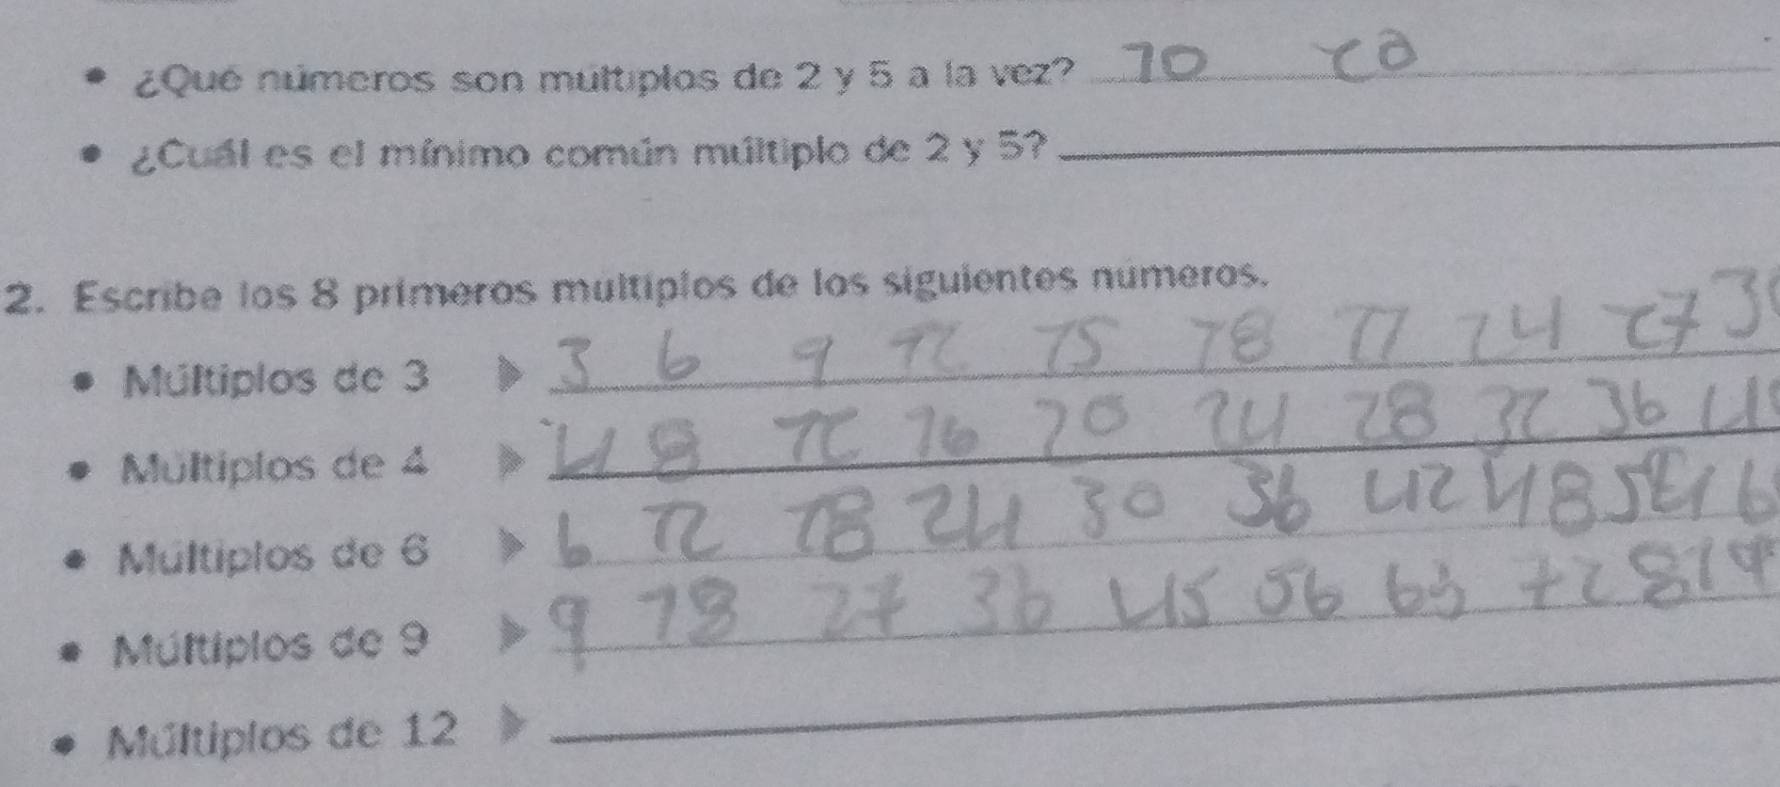 • ¿Qué números son múltiplos de 2 y 5 a la vez? 10 20
• ¿Cuál es el mínimo común múltiplo de 2 y 5?
2. Escribe los 8 primeros múltiplos de los siguientes números.
• Múltiplos de 3 3 6 9 12 15 18 21 24 27 30
• Múltiplos de 4 4 8 12 16 20 24 28 32 36 40
• Múltiplos de 6 6 12 18 24 30 36 42 48 54 6
• Múltiplos de 9 9 18 27 36 45 56 63 72 81 9
• Múltiplos de 12